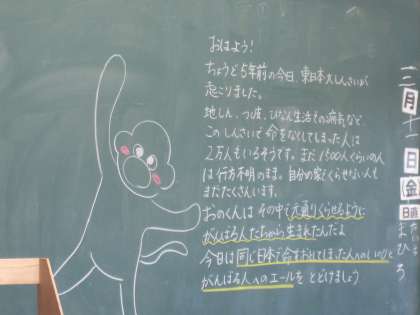 おはよう!
ちょうど5年前の今日、東日本大しんさいが
起こりました。
地しん、つ波、ひなん生活での病気など、
このしんさいで命をなくしてしまった人は
2万人もいるそうです。まだ1500人くらいの人
は行方不明のまま。自分の家でくらせない人も
まだたくさんいます。
おのくんは その中で元通りくらせるように
がんばる人たちから生まれたんだよ
今日は同じ日本で命をおとしてしまった人へのいのりと
がんばる人へのエールを とどけましょう
三月十
日(金)
日直
まひろ